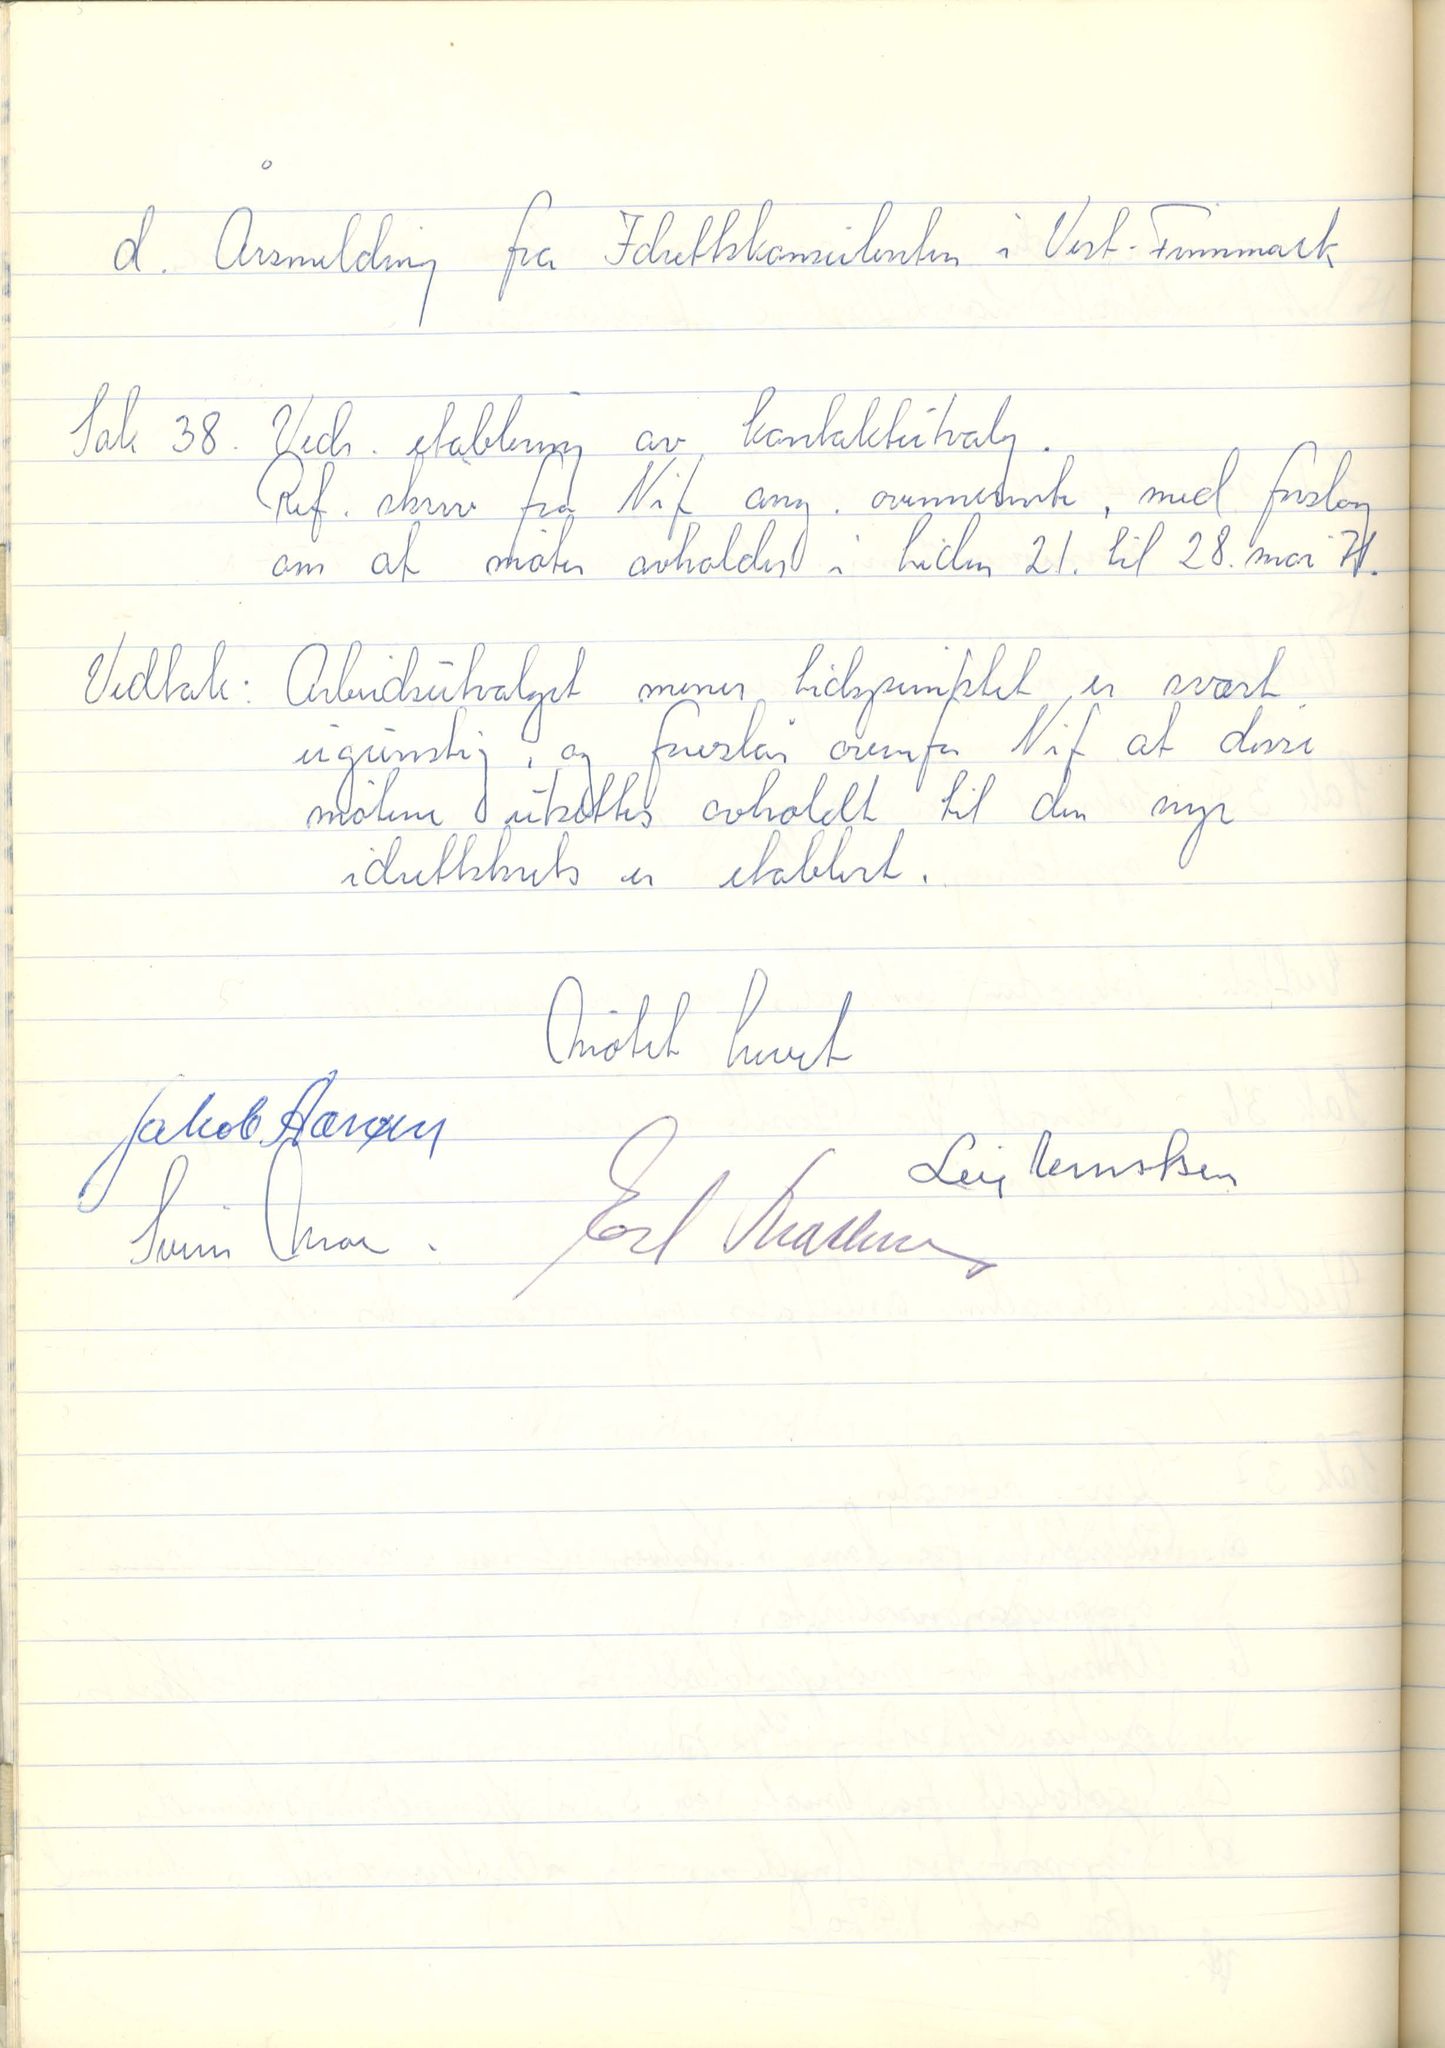 d. Årsmelding fra Idrettskonsulenten i Vest-Finnmark
Sak 38. Vedr. etablering av kontaktutvalg.
Ref. skriv fra Nif ang. ovennevnte, med forslag
om at møter avholdes i tiden 21. til 28. mai 71.
Vedtak: Arbeidsutvalget mener tidspunktet er svært
ugunstig, og foreslår ovenfor Nif at disse
møtene utsettes avholdt til den nye
idrettskrets er etablert.
Møtet hevet
Jakob
Leif
Svein Moe.